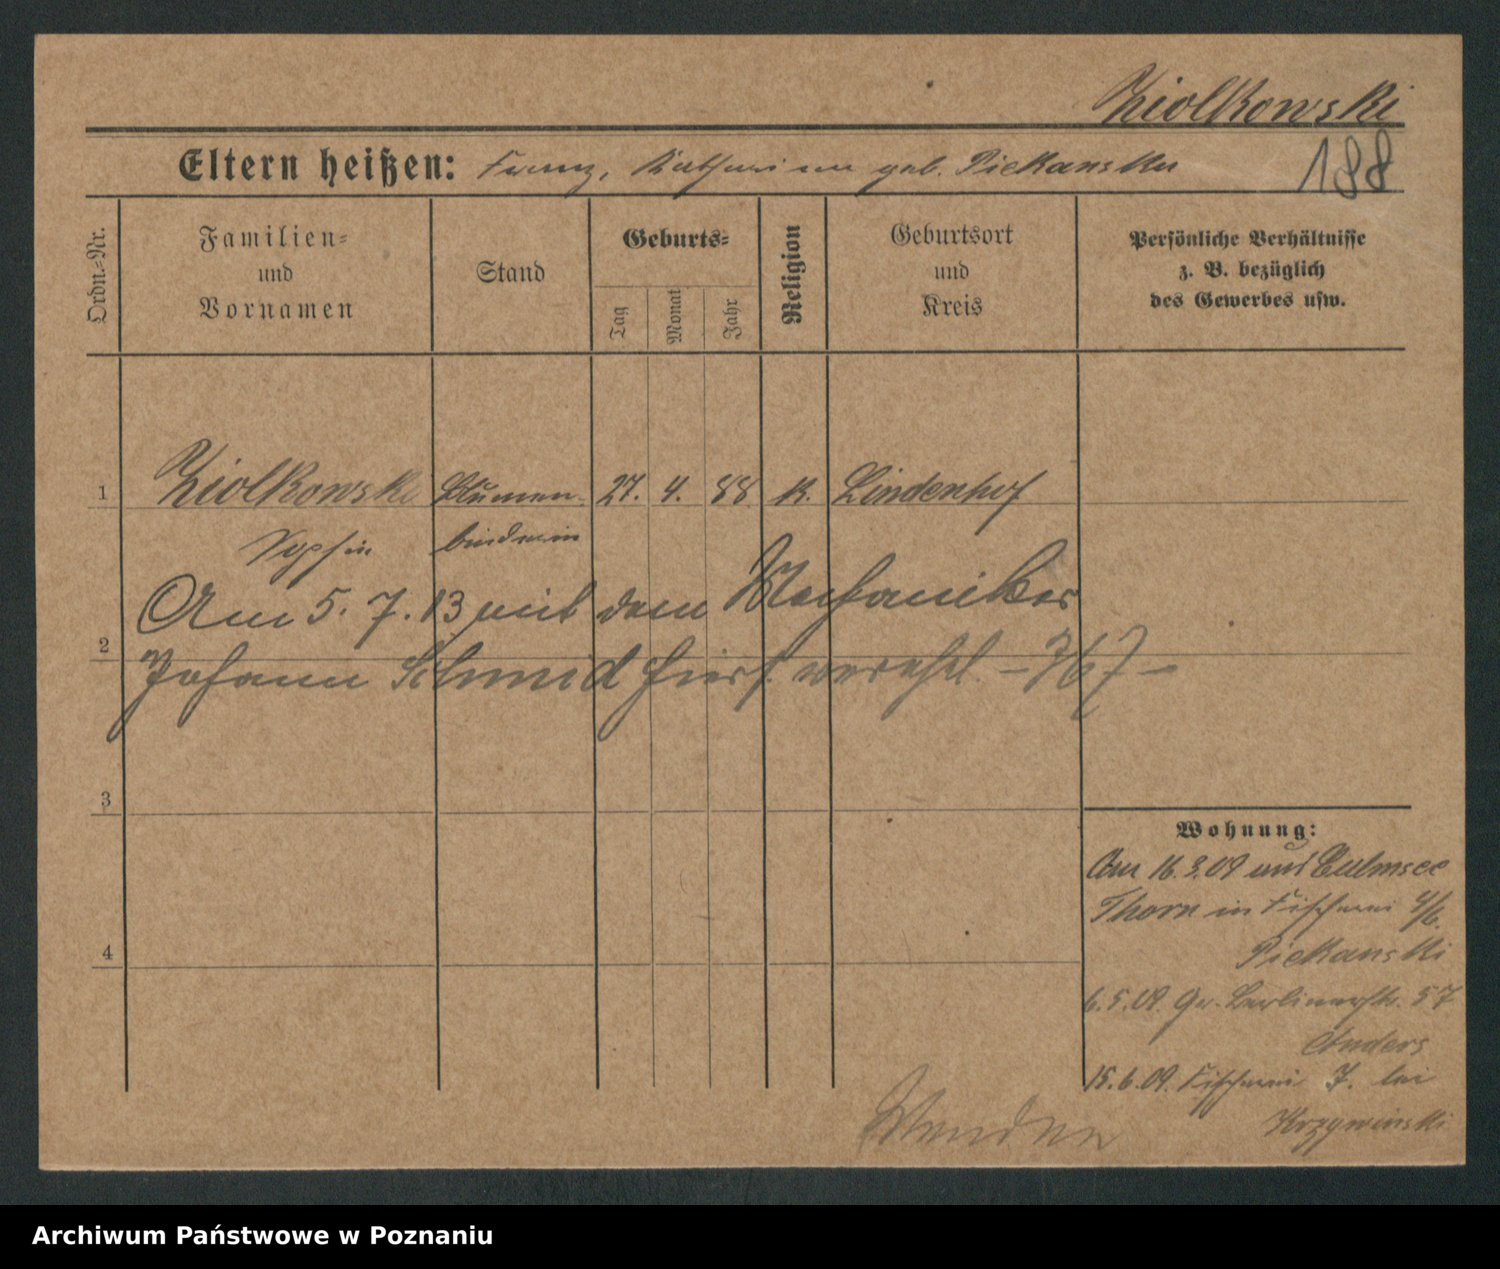 Ziolkowski
Eltern heißen: Franz, Katharina geb. Piekanska
188
Ordn.-Nr.
Familien-
und
Vornamen
Stand
Geburts-
Tag
Monat
Jahr
Religion
Geburtsort
und
Kreis
Persönliche Verhältnisse
z. B. bezüglich
des Gewerbes usw.
1 Ziolkowski Blumen- 27. 4. 88 K. Lindenhof
Sophie binderin
Am 5. 7. 13 mit dem Mechaniker
2
Johann Schmid hiers. verehel. – 767 –
3
4
Wohnung:
Am 16. 3. 09 aus Culmsee
Thorn in Fischerei 4/6.
Piekanski
6. 5. 09. Gr. Berlinerstr. 57
Anders
15. 6. 09. Fischerei 7. bei
Krzywinski
Wenden
Archiwum Państwowe w Poznaniu